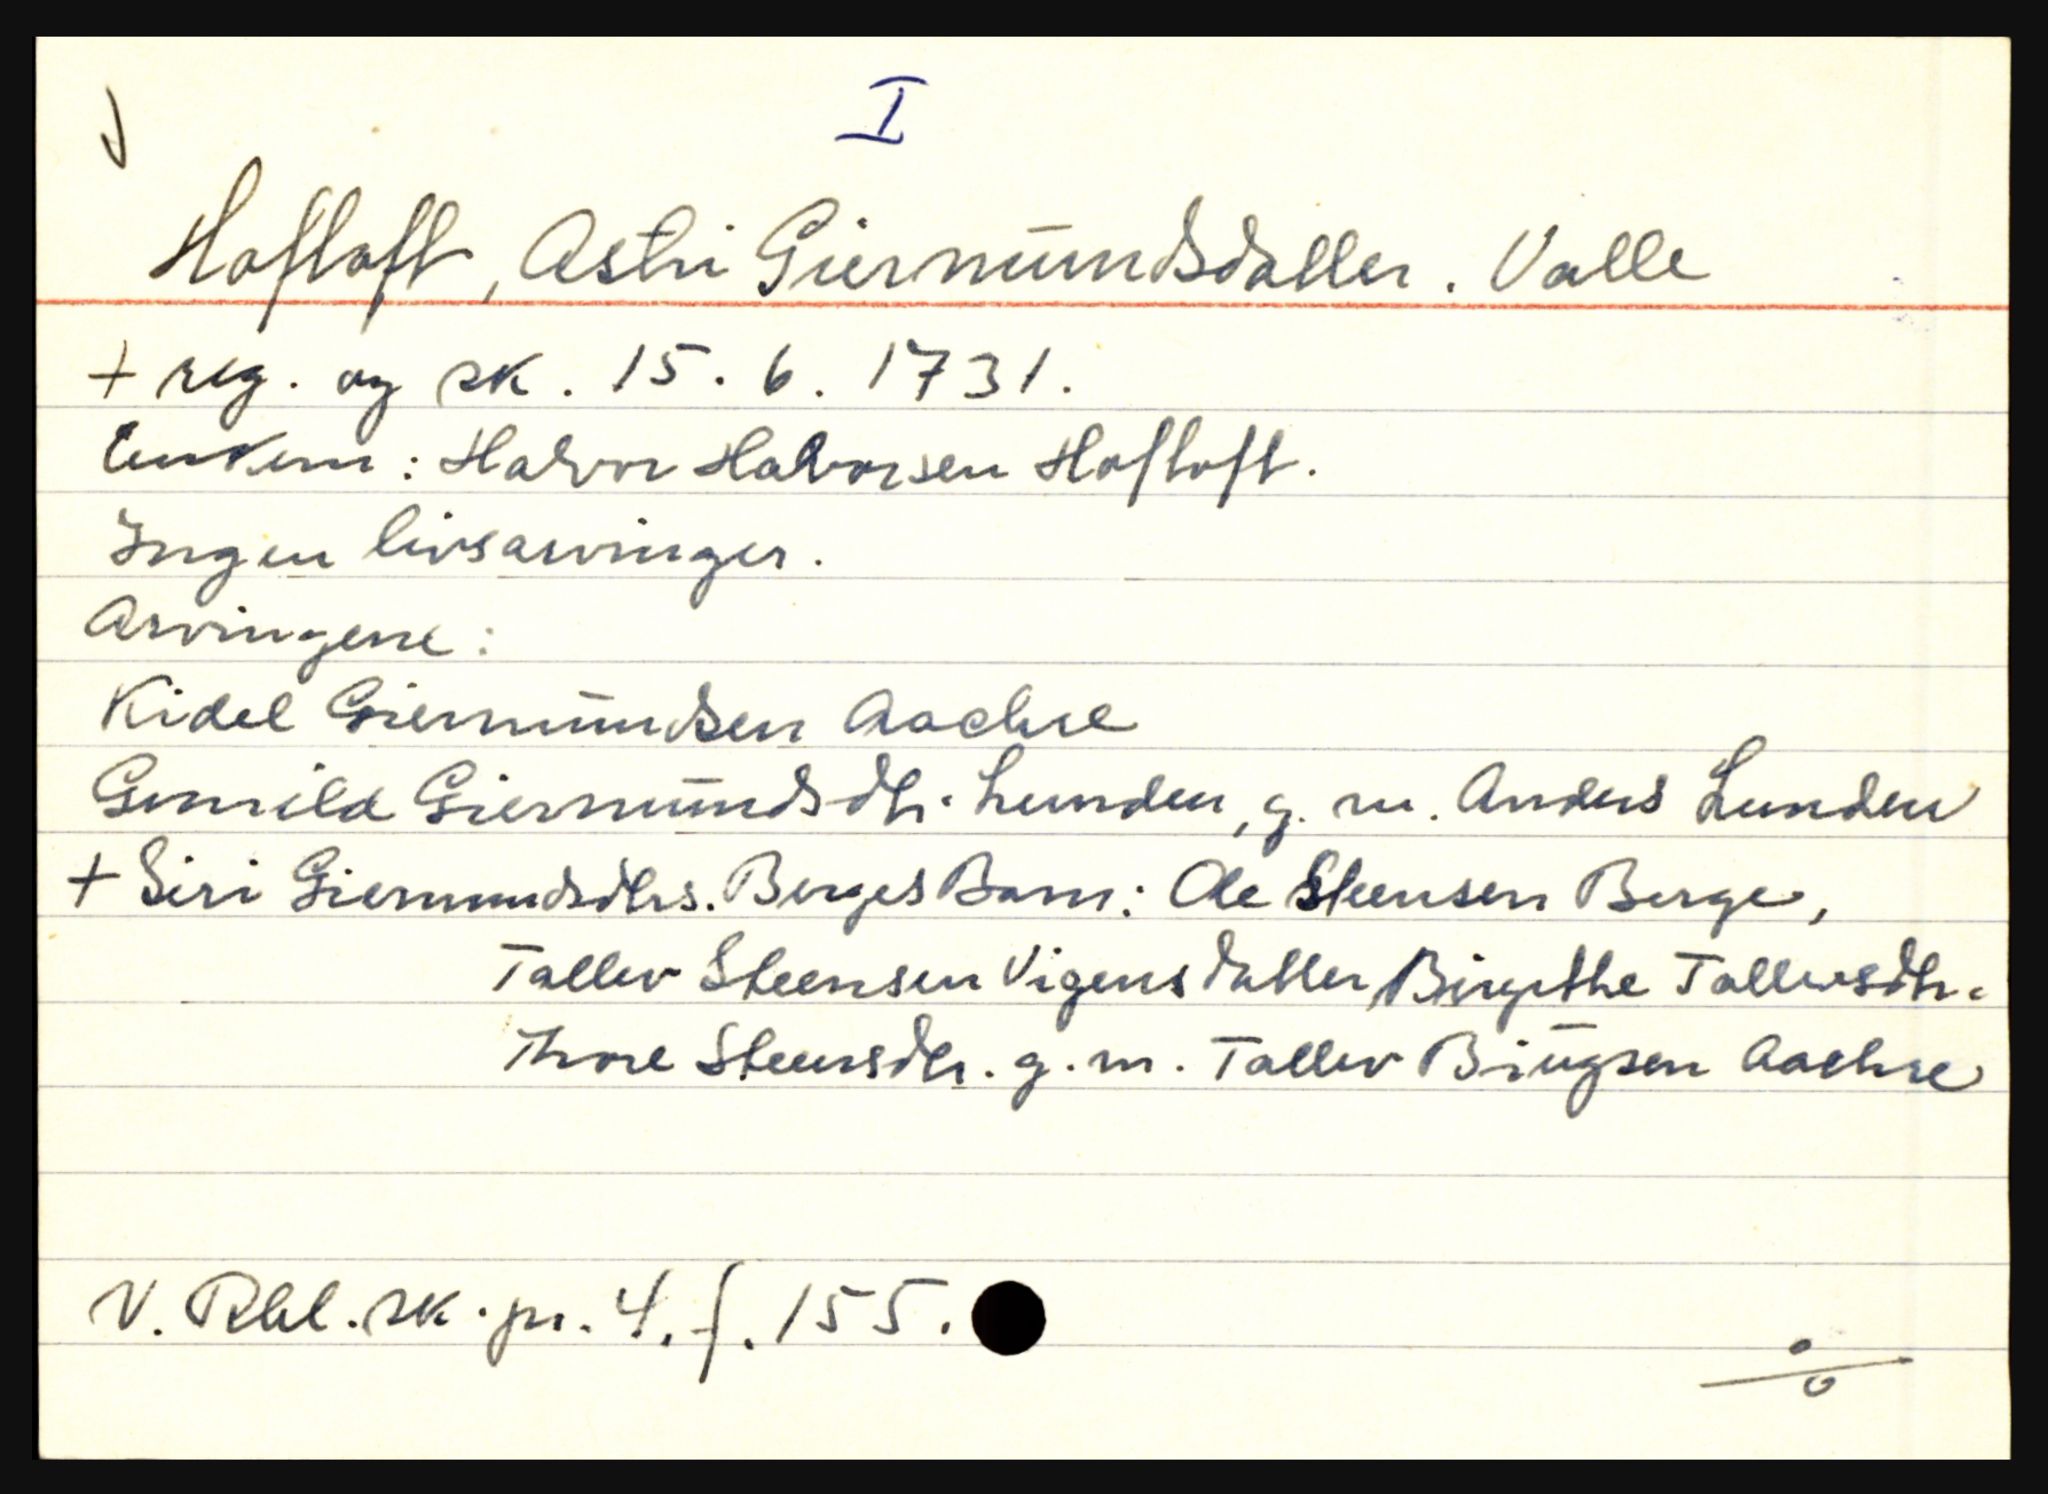 I
Hofloft, Astri Giermündsdatter. Valle
+ reg. og sk. 15. 6. 1731.
Enkem: Halvor Halvorsen Hofloft.
Ingen livsarvinger.
Arvingene:
Kidel Giermündsen Aachre
Gunild Giermündsdtr. Lunden, g. m. Anders Lunden
+ Siri Giermundsdtrs. Berges Barn: Ole Steensen Berge,
Tallev Steensen Vigens datter, Birgithe Tallevsdtr.
Thore Steensdtr. g. m. Tallev Biügsen Aachre
V. Rbl. sk. pr. 4. f. 155.